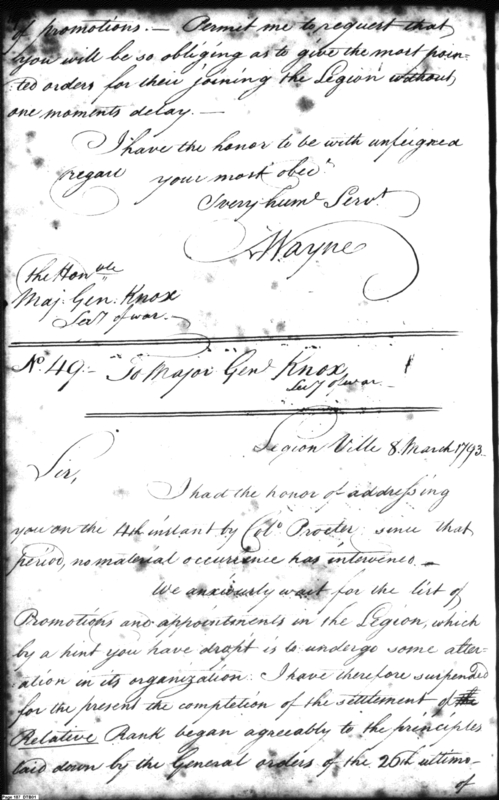 of promotions. — Permit me to request that
you will be so obliging as to give the most poin-
ted orders for their joining the Legion without
one moments delay. —
I have the honor to be with unfeigned
regard your most obedt
& very huml Servt
A Wayne
The Honble
Maj. Gen. Knox
Secy of war. —
No. 49 — To Major Genl Knox
Secy of war —
Legion Ville 8 March 1793.
Sir,
I had the honor of addressing
you on the 4th instant by Colo Procter since that
period, no material occurrence has intervened. —
We anxiously wait for the list of
Promotions and appointments in the Legion, which
by a hint you have dropt is to undergo some alter-
ation in its organization. I have therefore suspended
for the present the completion of the settlement of the
Relative Rank began agreeably to the principles
laid down by the General orders of the 26th ultimo.
of